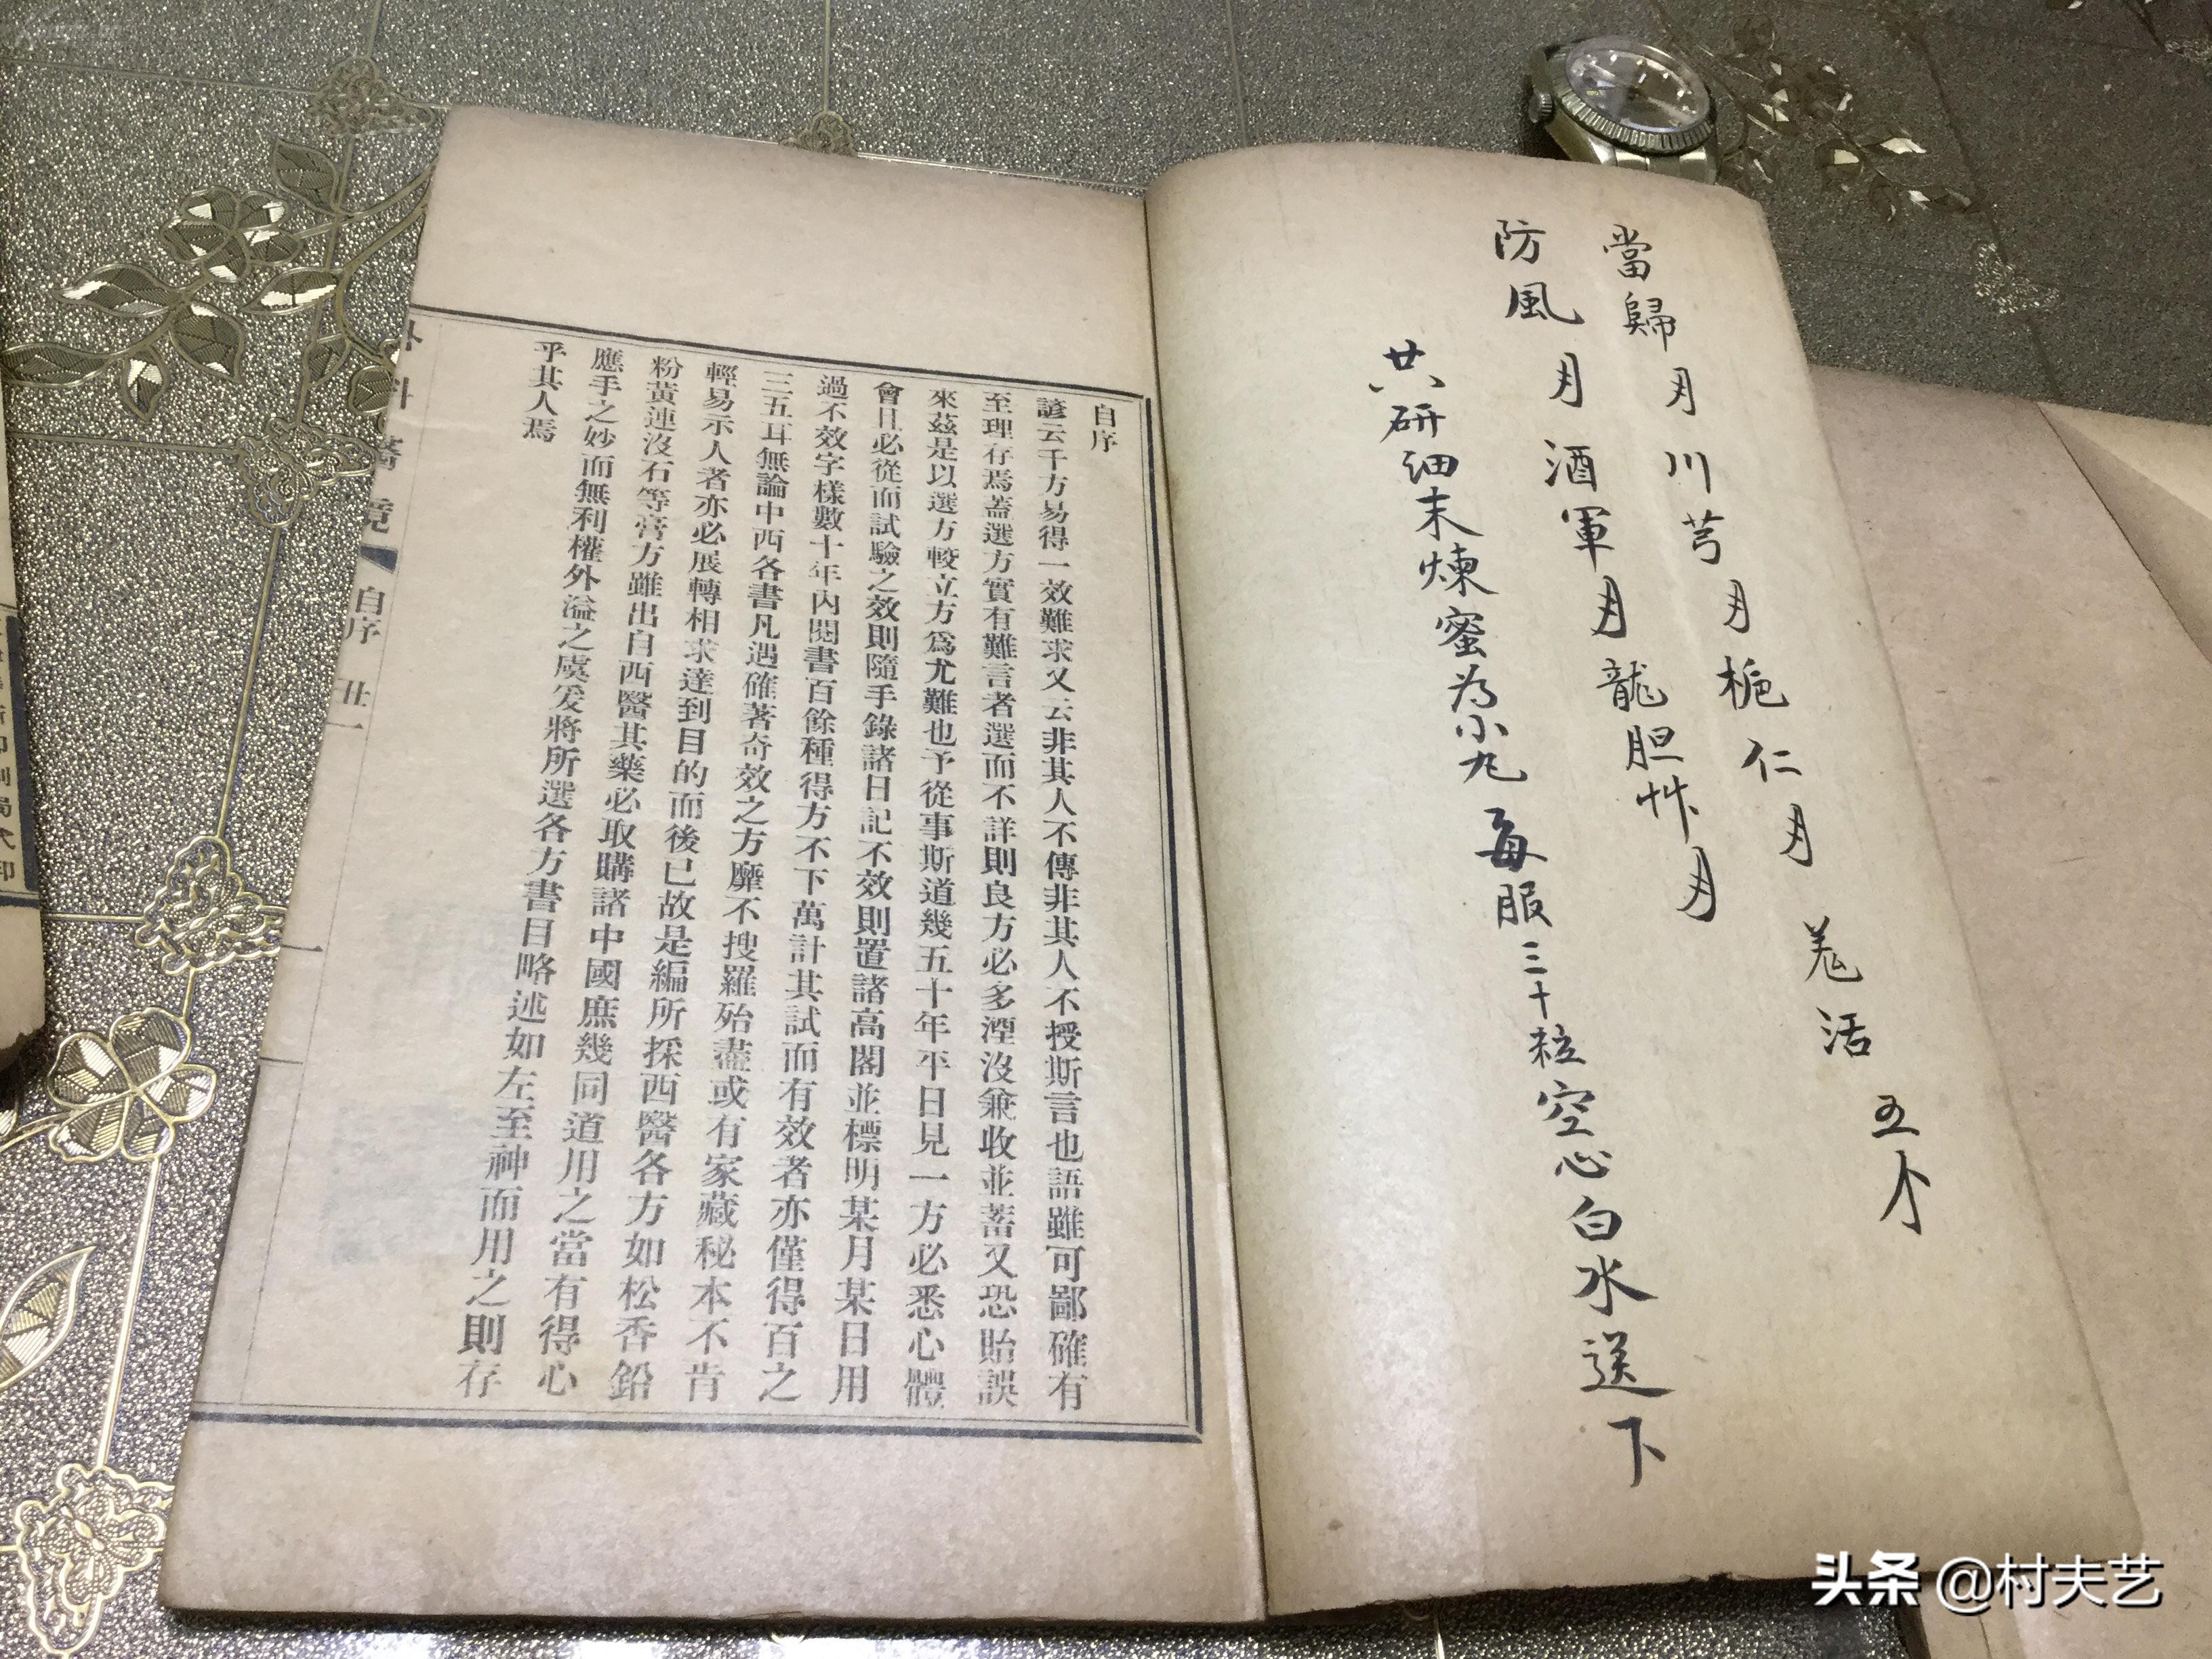 當歸月川芎月梔仁月羌活五个
防風月酒軍月龍胆艸月
共研细末煉蜜为小丸每服三十粒空心白水送下
自序
諺云千方易得一效難求又云非其人不傳非其人不授斯言也語雖可鄙確有
至理存焉蓋選方實有難言者選而不詳則良方必多湮沒兼收並蓄又恐貽誤
來茲是以選方較立方爲尤難也予從事斯道幾五十年平日見一方必悉心體
會且必從而試驗之效則隨手錄諸日記不效則置諸高閣並標明某月某日用
過不效字樣數十年內閱書百餘種得方不下萬計其試而有效者亦僅得百之
三五耳無論中西各書凡遇確著奇效之方靡不搜羅殆盡或有家藏秘本不肯
輕易示人者亦必展轉相求達到目的而後已故是編所採西醫各方如松香鉛
粉黃連沒石等膏方雖出自西醫其藥必取購諸中國庶幾同道用之當有得心
應手之妙而無利權外溢之虞爰將所選各方書目略述如左至神而用之則存
乎其人焉
外科醫鏡 自序 廿一
一
印刷局代印
头条 @村夫艺